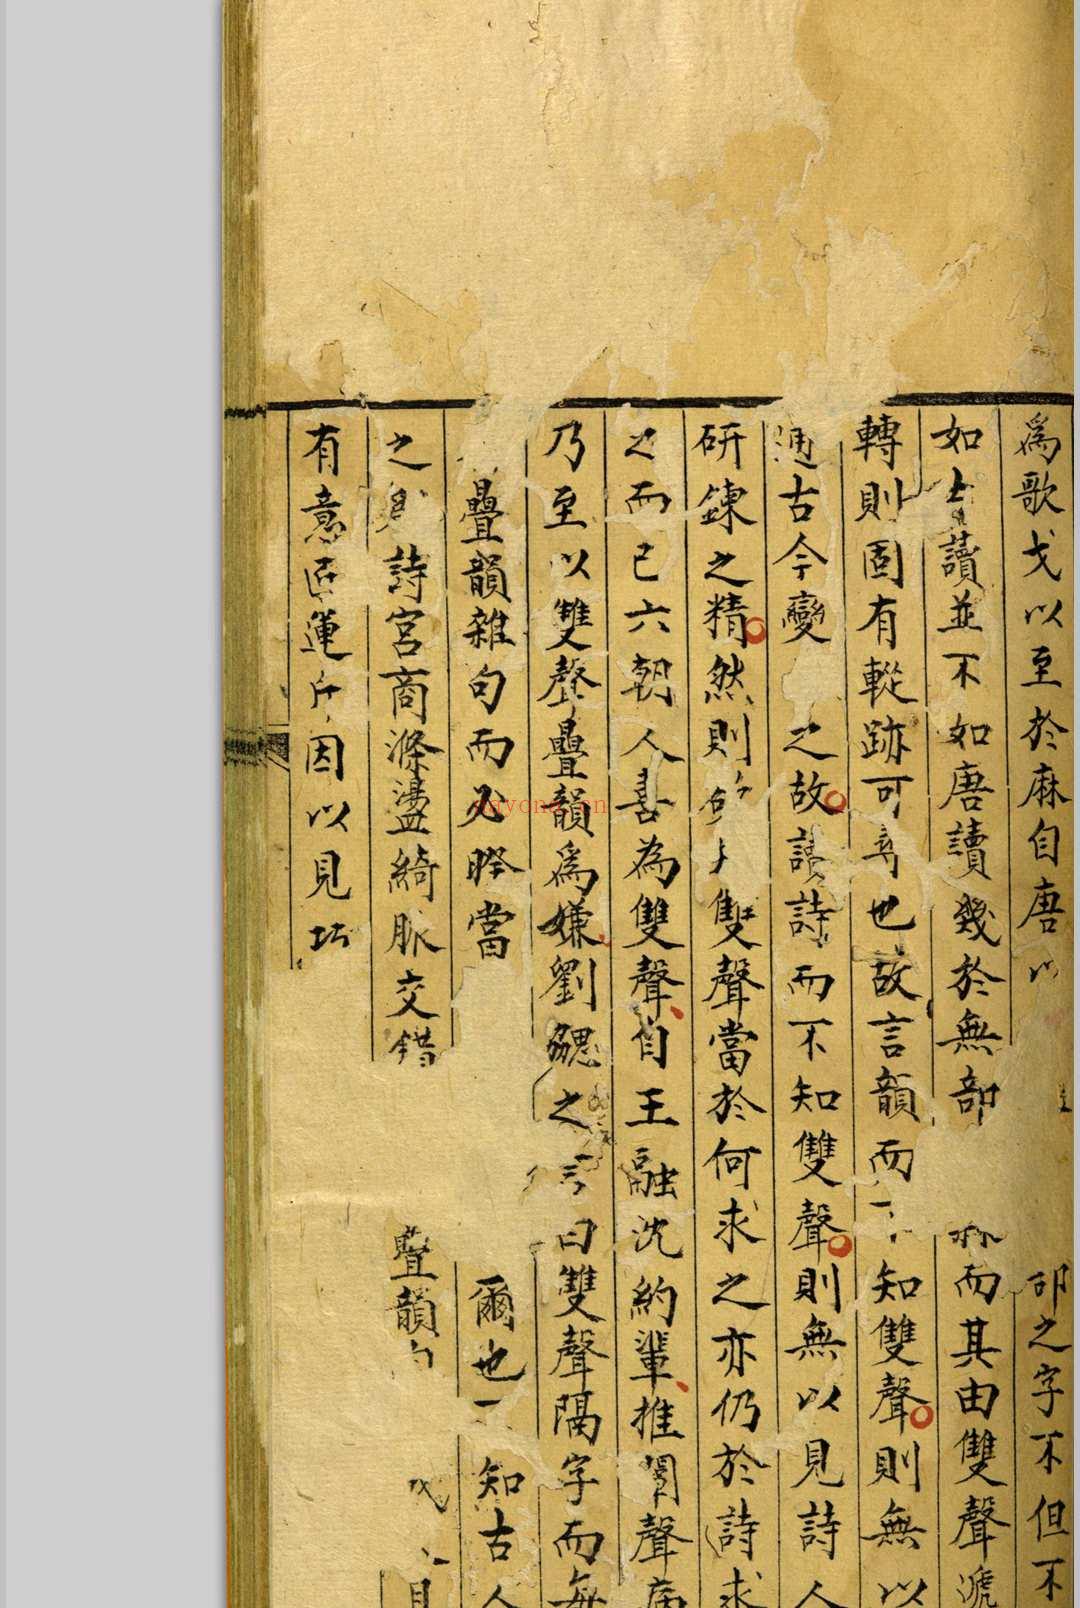 爲歌戈以至於麻自唐以卲之字不但不
如讀並不如唐讀幾於無部而其由雙聲遞
轉則固有蹤跡可尋也故言韻而不知雙聲則無以
通古今變之故讀詩而不知雙聲則無以見詩人
研鍊之精然則雙聲當於何求之亦仍於詩求
之而已六朝人喜為雙聲自王融沈約輩推闡聲病
乃至以雙聲疊韻爲嫌劉勰之言曰雙聲隔字而每
疊韻雜句而必睽當爾也不知古人
之詩宮商滌盪綺脈交錯疊韻
有意匠運斤因以見